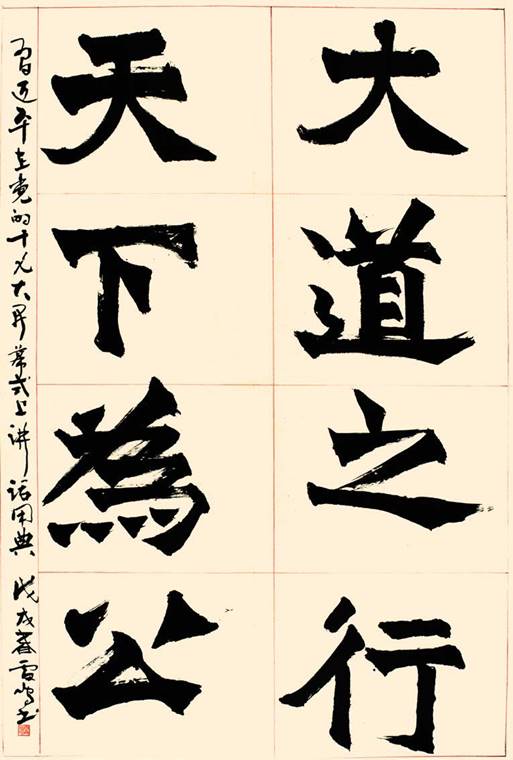 大道之行
天下為公
习近平在党的十九大开幕式上讲话用典 戊戌春雪鸣书